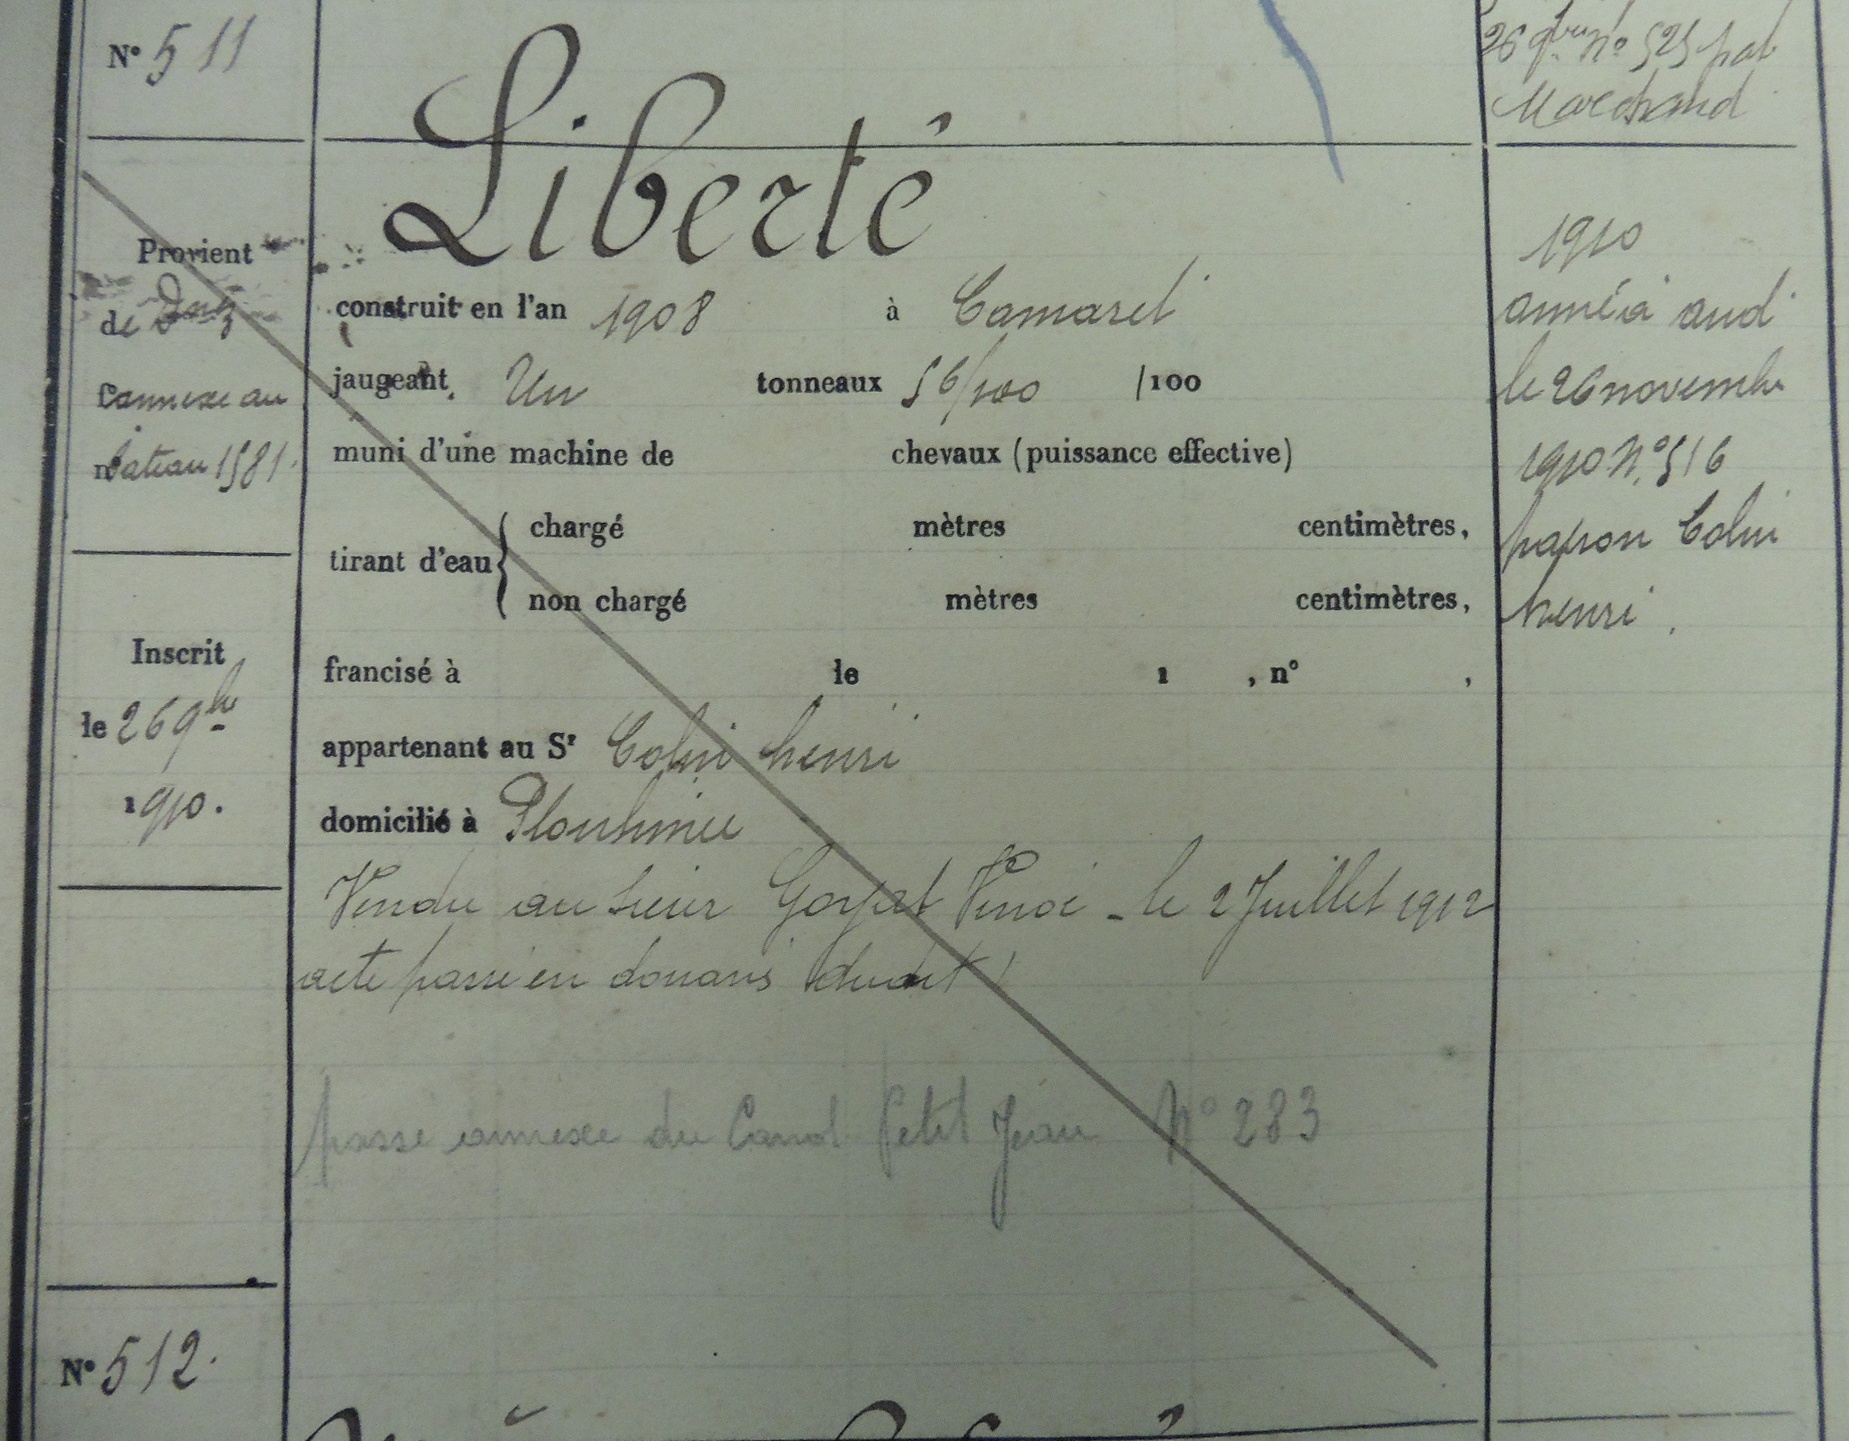 N° 511
26 9bre N° 525 pat
Marchand
Liberté
Provient
de Dnz
l'annexe au
n° bateau 1581.
construit en l'an 1908 à Camaret
jaugeant Un tonneaux 56/100 /100
muni d'une machine de chevaux (puissance effective)
tirant d'eau { chargé mètres centimètres,
non chargé mètres centimètres,
Inscrit
le 26 9bre
1910.
francisé à le 1 , n° ,
appartenant au Sr Colin henri
domicilié à Plouhinec
Vendu au sieur le 2 Juillet 1912
acte passé en douanes dudit
passé annexe du Canot Petit Jean N° 283
1910
armé à aud
le 26 novembre
1910 N° 516
patron Colin
henri.
N° 512.